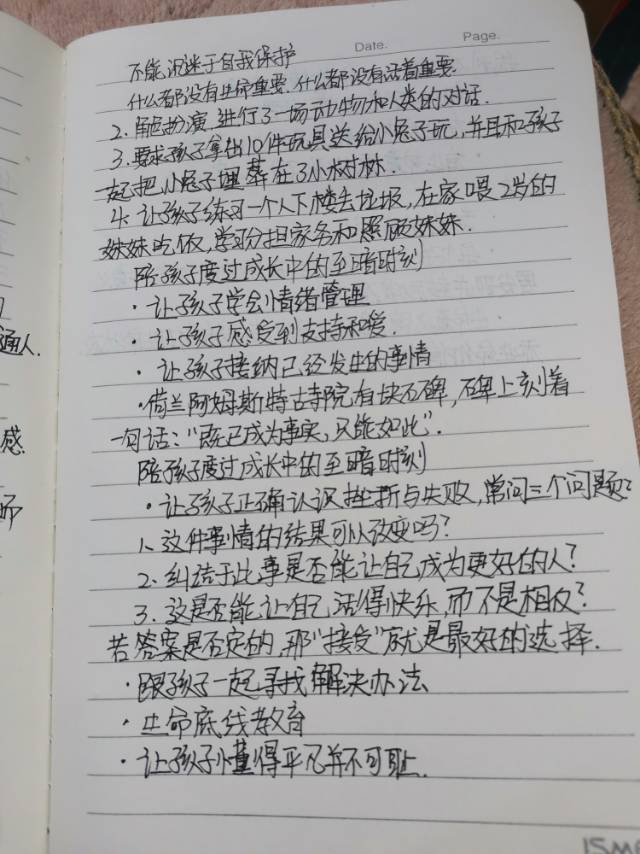 Date.
Page.
不能沉迷于自我保护
什么都没有生命重要.什么都没有活着重要.
2.角色扮演,进行了一场动物和人类的对话.
3.要求孩子拿出10件玩具送给小兔子玩,并且和孩子
一起把小兔子埋葬在了小树林.
4.让孩子练习一个人下楼去垃圾,在家喂2岁的
妹妹吃饭,学习分担家务和照顾妹妹.
陪孩子度过成长中的至暗时刻
·让孩子学会情绪管理
·让孩子感受到支持和爱.
·让孩子接纳已经发生的事情
·荷兰阿姆斯特古寺院有块石碑,碑上刻着
一句话:“既已成为事实,只能如此”.
陪孩子度过成长中的至暗时刻
·让孩子正确认识挫折与失败,常问三个问题?
1.这件事情的结果可以改变吗?
2.纠结于此事是否能让自己成为更好的人?
3.这是否能让自己活得快乐,而不是相反?
若答案是否定的,那“接受”就是最好的选择.
·跟孩子一起寻找解决办法
·生命底线教育
·让孩子懂得平凡并不可耻.
通人.
感.
师